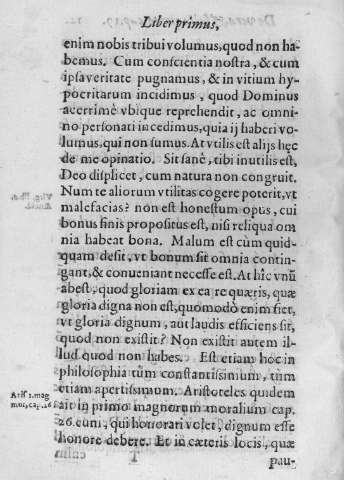 Liber primus,
enim nobis tribui volumus, quod non ha-
bemus. Cum conscientia nostra, & cum
ipsa veritate pugnamus, & in vitium hy-
pocritarum incidimus, quod Dominus
acerrimè vbique reprehendit, ac omni-
no personati incedimus, quia ij haberi vo-
lumus, qui non sumus. At vtilis est alijs hęc
de me opinatio. Sit sanè, tibi inutilis est,
Deo displicet, cum natura non congruit.
Num te aliorum vtilitas cogere poterit, vt
malefacias? non est honestum opus, cui
bonus finis propositus est, nisi reliqua om
nia habeat bona. Malum est cùm quid-
quam desit, vt bonum sit omnia contin-
gant, & conueniant necesse est. At hîc vnũ
abest, quod gloriam ex ea re quæris, quæ
gloria digna non est, quomodò enim fiet,
vt gloria dignum, aut laudis efficiens sit,
quod non existit? Non existit autem il-
lud quod non habes. Est etiam hoc in
philosophia tùm constantissimum, tùm
etiam apertissimum. Aristoteles quidem
Arist 1. mag
ait in primo magnorum moralium cap.
mor, cap. 26
26. eum, qui honorari volet, dignum esse
honore debere. Et in cæteris locis, quæ
T
pau-